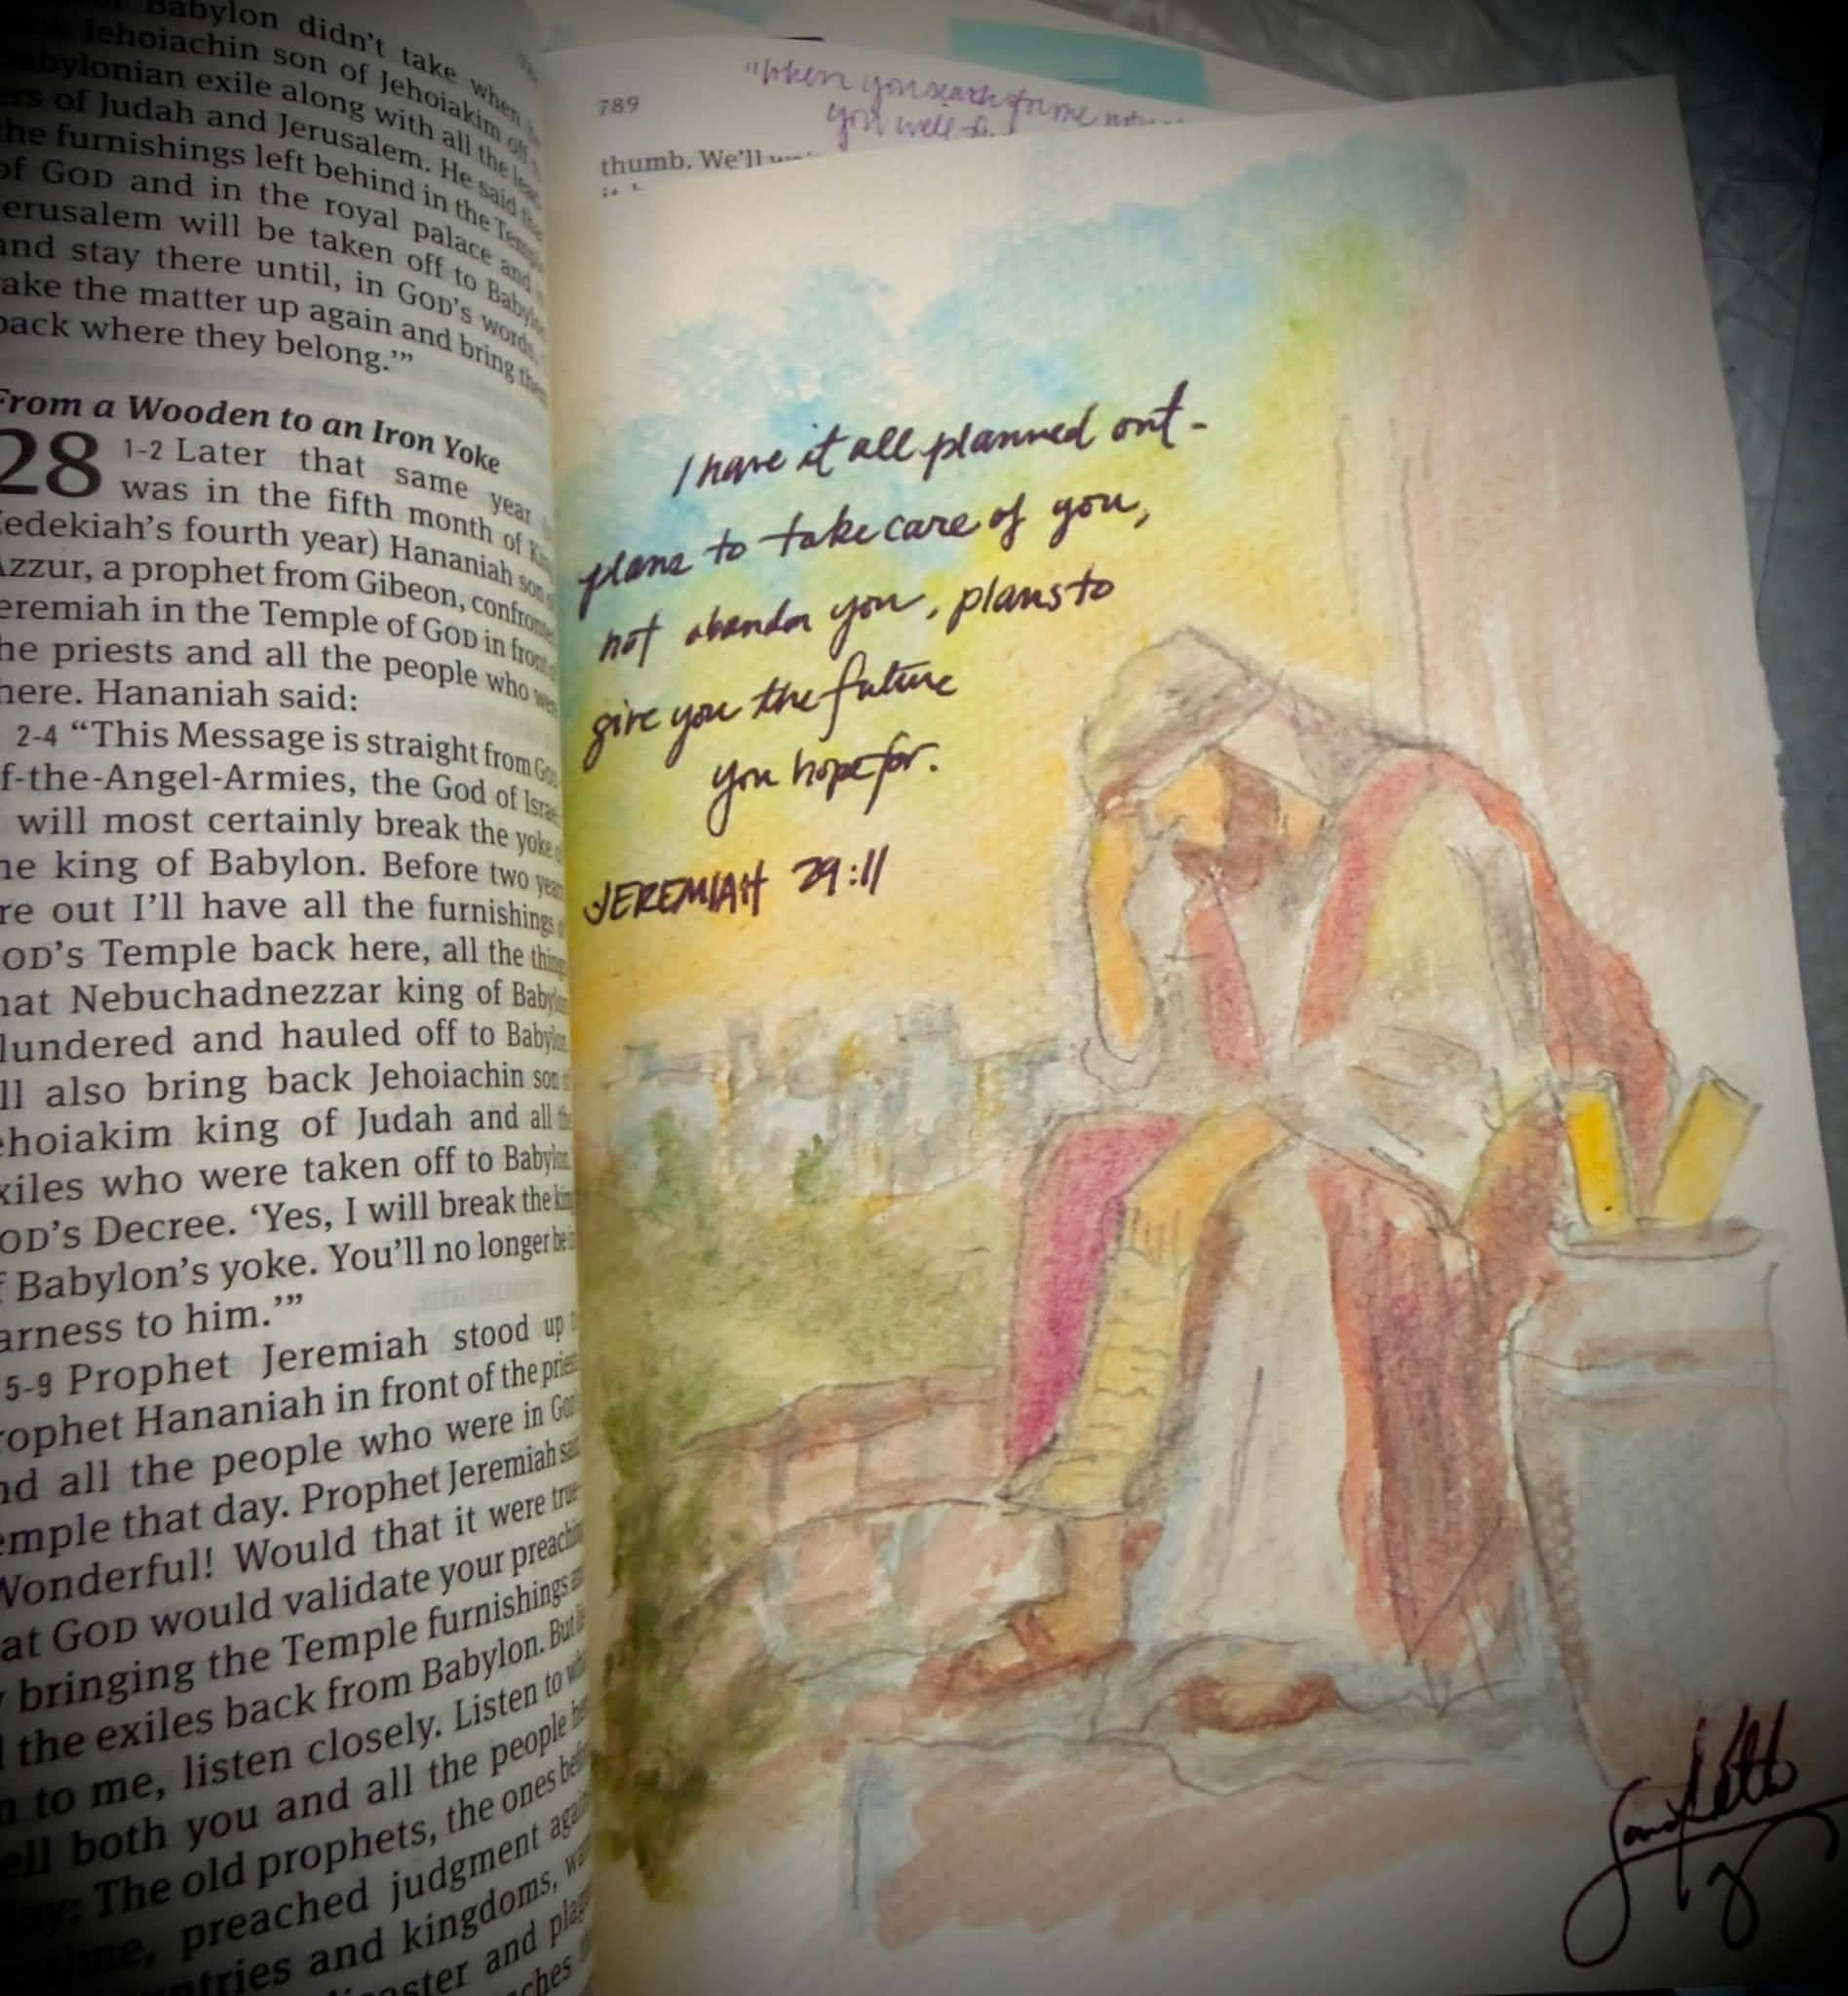 Babylon didn't take when
Jehoiachin son of Jehoiakim off
Babylonian exile along with all the
of Judah and Jerusalem. He said
the furnishings left behind in the
of GOD and in the royal palace and
Jerusalem will be taken off to
and stay there until, in GOD's words,
take the matter up again and bring
back where they belong.'"
From a Wooden to an Iron Yoke
28 1-2 Later that same year
was in the fifth month of
Zedekiah's fourth year) Hananiah son
Azzur, a prophet from Gibeon,
Jeremiah in the Temple of GOD in front
the priests and all the people who
here. Hananiah said:
2-4 "This Message is straight from
f-the-Angel-Armies, the God of
will most certainly break the yoke
he king of Babylon. Before two
re out I'll have all the furnishings
GOD'S Temple back here, all the
hat Nebuchadnezzar king of
lundered and hauled off to
ll also bring back Jehoiachin son
ehoiakim king of Judah and all
xiles who were taken off to Babylon.
GOD'S Decree. 'Yes, I will break the
f Babylon's yoke. You'll no longer be
arness to him.'"
5-9 Prophet Jeremiah stood up
rophet Hananiah in front of the
nd all the people who were in
emple that day. Prophet Jeremiah
Wonderful! Would that it were
at GOD would validate your
bringing the Temple furnishings
the exiles back from Babylon. But
to me, listen closely. Listen to
ell both you and all the people
The old prophets, the ones
time, preached judgment
ntries and kingdoms,
and
789
"When you search for me
you will
thumb. We'll
I have it all planned out-
plans to take care of you,
not abandon you, plans to
give you the future
you hope for.
JEREMIAH 29:11